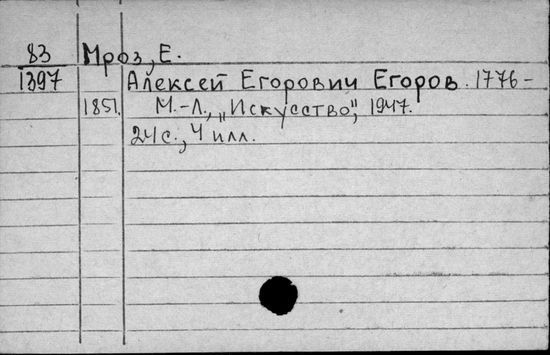 83 Мроз, Е.
1397 Алексей Егорович Егоров. 1776-
1851. М.-Л., „Искусство", 1947.
24 с., 4 илл.